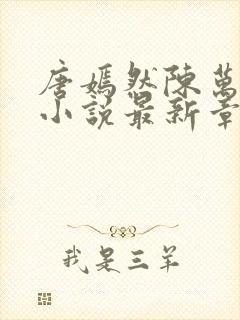 唐嫣然陳萬
小說最新章
我是三羊